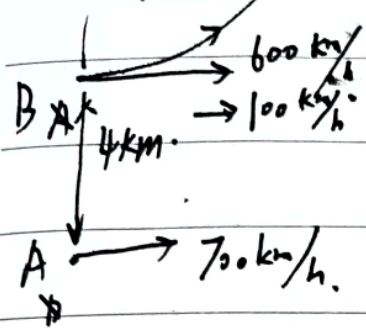 600 km/h
B → 100 km/h.
4km.
A → 700km/h.